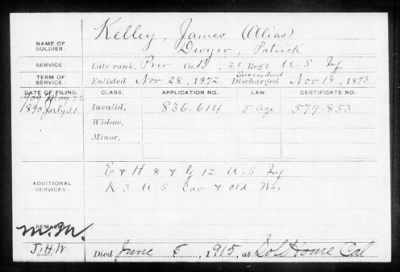 Kelley, James (Alias)
NAME OF SOLDIER: Dwyer, Patrick
SERVICE: Late rank, Priv Co. B, 21 Reg't U.S. Inf
TERM OF SERVICE: Enlisted Nov 28, 1872 Surrendered Discharged Nov 18, 1873
DATE OF FILING. CLASS. APPLICATION NO. LAW. CERTIFICATE NO.
1890 July 31 Invalid, 836.614 579.853
Widow,
Minor,
ADDITIONAL SERVICES: E & H 8 & G 12 U.S. Inf
K 3 U S Cav & old War
REMARKS:
M.M.
J.H.W. Died June 6, 1915, at Home Cal